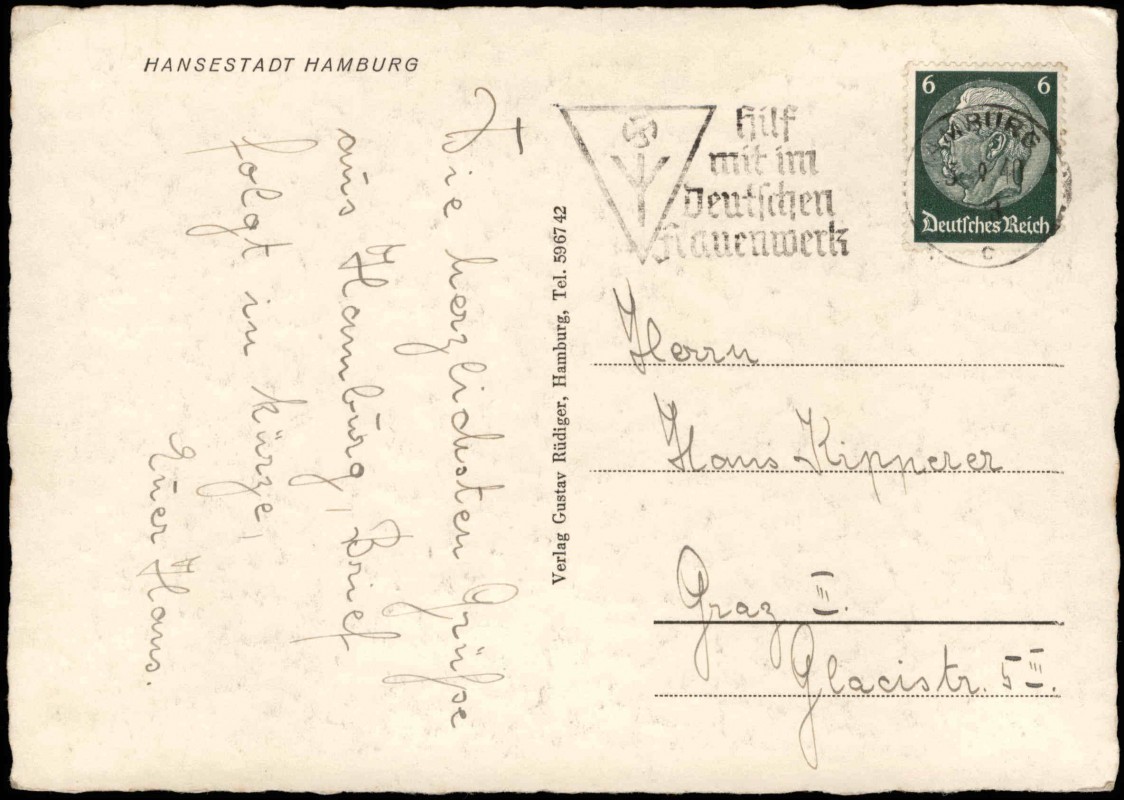 HANSESTADT HAMBURG
Die herzlichsten Grüße
aus Hamburg, Brief
folgt in kürze,
Euer Hans.
Verlag Gustav Rüdiger, Hamburg, Tel. 596742
Hilf
mit im
Deutschen
Frauenwerk
6 6
Deutsches Reich
HAMBURG
C
Herrn
Hans Kipperer
Graz III.
Glacistr. 5 III.